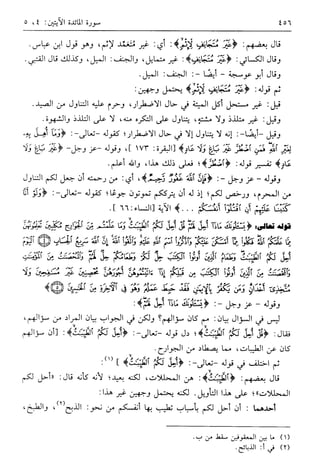 ٤٥٦
سورة المائدة الآيتين: ٤، ٥
قال بعضهم: ﴿غَيْرَ مُتَجَانِفٍ لِإِثْمٍ﴾؛ أي: غير متعمد لإثم، وهو قول ابن عباس.
وقال الكسائي: ﴿غَيْرَ مُتَجَانِفٍ﴾: غير متمايل، والجنف: الميل، وكذلك قال القتبي.
وقال أبو عوسجة - أيضًا -: الجنف: الميل.
ثم قوله: ﴿غَيْرَ مُتَجَانِفٍ لِإِثْمٍ﴾ يحتمل وجهين:
قيل: غير مستحل أكل الميتة في حال الاضطرار، وحرم عليه التناول من الصيد.
وقيل: غير متلذذ ولا مشتهٍ، يتناول على التكره منه، لا على التلذذ والشهوة.
وقيل -أيضًا-: إنه لا يتناول إلا في حال الاضطرار؛ كقوله -تعالى-: ﴿وَمَا أُهِلَّ بِهِ
لِغَيْرِ اللَّهِ فَمَنِ اضْطُرَّ غَيْرَ بَاغٍ وَلَا عَادٍ﴾ [البقرة: ١٧٣ ]، وقوله -عز وجل- ﴿غَيْرَ بَاغٍ وَلَا
عَادٍ﴾ تفسير قوله: ﴿فَمَنِ اضْطُرَّ﴾؛ فعلى ذلك هذا، والله أعلم.
وقوله - عز وجل -: ﴿فَإِنَّ اللَّهَ غَفُورٌ رَحِيمٌ﴾، أي: من رحمته أن جعل لكم التناول
من المحرم، ورخص لكم؛ إذ له أن يترككم تموتون جوعًا؛ كقوله -تعالى-: ﴿وَلَوْ أَنَّا
كَتَبْنَا عَلَيْهِمْ أَنِ اقْتُلُوا أَنْفُسَكُمْ . . .﴾ الآية [النساء: ٦٦ ].
قوله تعالى: ﴿يَسْأَلُونَكَ مَاذَا أُحِلَّ لَهُمْ قُلْ أُحِلَّ لَكُمُ الطَّيِّبَاتُ وَمَا عَلَّمْتُمْ مِنَ الْجَوَارِحِ مُكَلِّبِينَ تُعَلِّمُونَهُنَّ
مِمَّا عَلَّمَكُمُ اللَّهُ فَكُلُوا مِمَّا أَمْسَكْنَ عَلَيْكُمْ وَاذْكُرُوا اسْمَ اللَّهِ عَلَيْهِ وَاتَّقُوا اللَّهَ إِنَّ اللَّهَ سَرِيعُ الْحِسَابِ الْيَوْمَ
أُحِلَّ لَكُمُ الطَّيِّبَاتُ وَطَعَامُ الَّذِينَ أُوتُوا الْكِتَابَ حِلٌّ لَكُمْ وَطَعَامُكُمْ حِلٌّ لَهُمْ وَالْمُحْصَنَاتُ مِنَ الْمُؤْمِنَاتِ
وَالْمُحْصَنَاتُ مِنَ الَّذِينَ أُوتُوا الْكِتَابَ مِنْ قَبْلِكُمْ إِذَا آتَيْتُمُوهُنَّ أُجُورَهُنَّ مُحْصِنِينَ غَيْرَ مُسَافِحِينَ وَلَا
مُتَّخِذِي أَخْدَانٍ وَمَنْ يَكْفُرْ بِالْإِيمَانِ فَقَدْ حَبِطَ عَمَلُهُ وَهُوَ فِي الْآخِرَةِ مِنَ الْخَاسِرِينَ﴾
وقوله - عز وجل -: ﴿يَسْأَلُونَكَ مَاذَا أُحِلَّ لَهُمْ﴾:
ليس في السؤال بيان: مم كان سؤالهم؟ ولكن في الجواب بيان المراد من سؤالهم،
فقال: ﴿قُلْ أُحِلَّ لَكُمُ الطَّيِّبَاتُ﴾؛ دل قوله -تعالى-: ﴿أُحِلَّ لَكُمُ الطَّيِّبَاتُ﴾: [أن سؤالهم
كان عن الطيبات، مما يصطاد من الجوارح.
ثم اختلف في قوله -تعالى-: ﴿أُحِلَّ لَكُمُ الطَّيِّبَاتُ﴾ ](١):
قال بعضهم: ﴿الطَّيِّبَاتُ﴾: هن المحللات، لكنه بعيد؛ لأنه كأنه قال: «أحل لكم
المحللات» على هذا التأويل. لكنه يحتمل وجهين غير هذا:
أحدهما : أن أحل لكم بأسباب تطيب بها أنفسكم من نحو: الذبح(٢)، والطبخ،
(١) ما بين المعقوفين سقط من ب.
(٢) في أ: الذبائح.